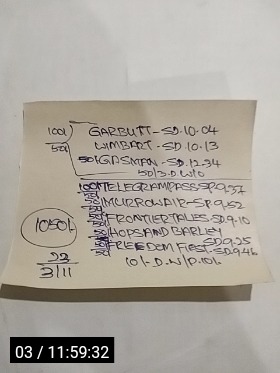 100/ GARBUTT - SD.10.04
50/ WIMBART - SD.10.13
50/ GASMAN - SD.12.34
50/3.D.W/0
100/ TELEGRAMPASS SP.9.37
MURROWAIR - SP.9.52
FRONTIERTALES - SD.9.10
HOPSANDBARLEY SD.9.25
FREEDOM FIEST - SD.9.46
10/-D.W/D.10/-
1050/-
23
3/11
03 / 11:59:32